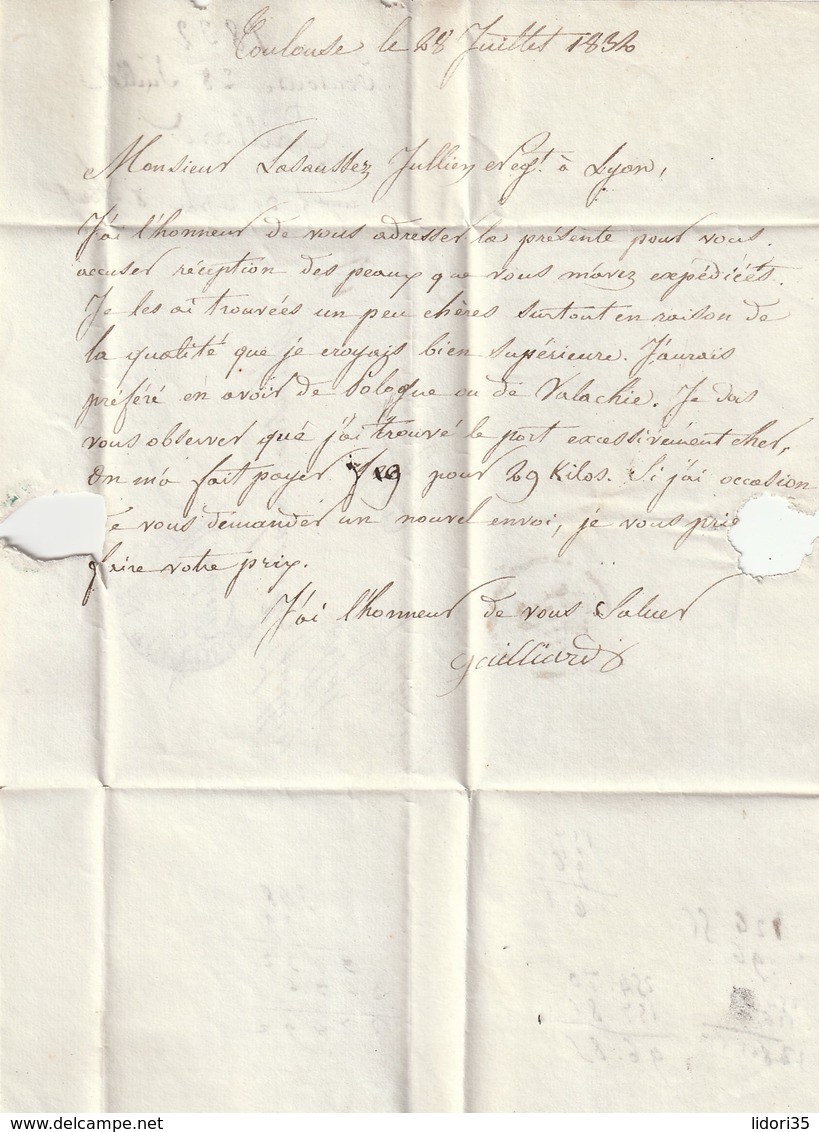 Toulouse le 28 Juillet 1832
Monsieur Lasaussez Jullien à Lyon,
J'ai l'honneur de vous adresser la présente pour vous
accuser réception des peaux que vous m'avez expédiées.
Je les ai trouvées un peu chères surtout en raison de
la qualité que je croyais bien supérieure. J'aurais
préféré en avoir de Pologne ou de Valachie. Je dois
vous observer que j'ai trouvé le port excessivement cher,
On m'a fait payer pour 29 Kilos. Si j'ai occasion
de vous demander un nouvel envoi, je vous prie
faire votre prix.
J'ai l'honneur de vous Saluer
Gailliard
lidori35